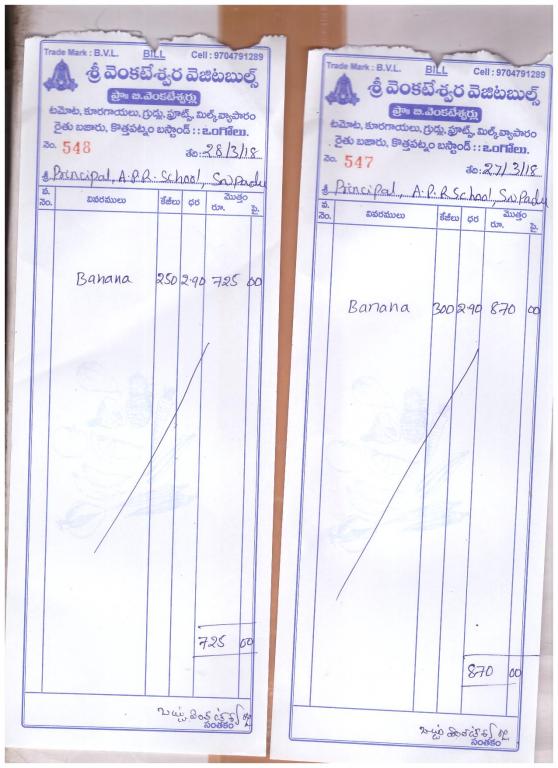 Trade Mark : B.V.L. BILL Cell : 9704791289
శ్రీ వెంకటేశ్వర వెజిటబుల్స్
ప్రొః బి.వెంకటేశ్వర్లు
టమోట, కూరగాయలు, గ్రుడ్లు, ఫ్రూట్స్, మిల్క్ వ్యాపారం
రైతు బజారు, కొత్తపట్నం బస్టాండ్ : : ఒంగోలు.
నెం. 548 తేది: 28/3/18
శ్రీ Principal, A.P.R. School, S.N. Padu
వ. నెం. వివరములు కేజీలు ధర మొత్తం రూ. పై.
Banana 250 2.90 725 00
725 00
సంతకం
Trade Mark : B.V.L. BILL Cell : 9704791289
శ్రీ వెంకటేశ్వర వెజిటబుల్స్
ప్రొః బి.వెంకటేశ్వర్లు
టమోట, కూరగాయలు, గ్రుడ్లు, ఫ్రూట్స్, మిల్క్ వ్యాపారం
రైతు బజారు, కొత్తపట్నం బస్టాండ్ : : ఒంగోలు.
నెం. 547 తేది: 27/3/18
శ్రీ Principal, A.P.R School, S.N. Padu
వ. నెం. వివరములు కేజీలు ధర మొత్తం రూ. పై.
Banana 300 2.90 870 00
870 00
సంతకం